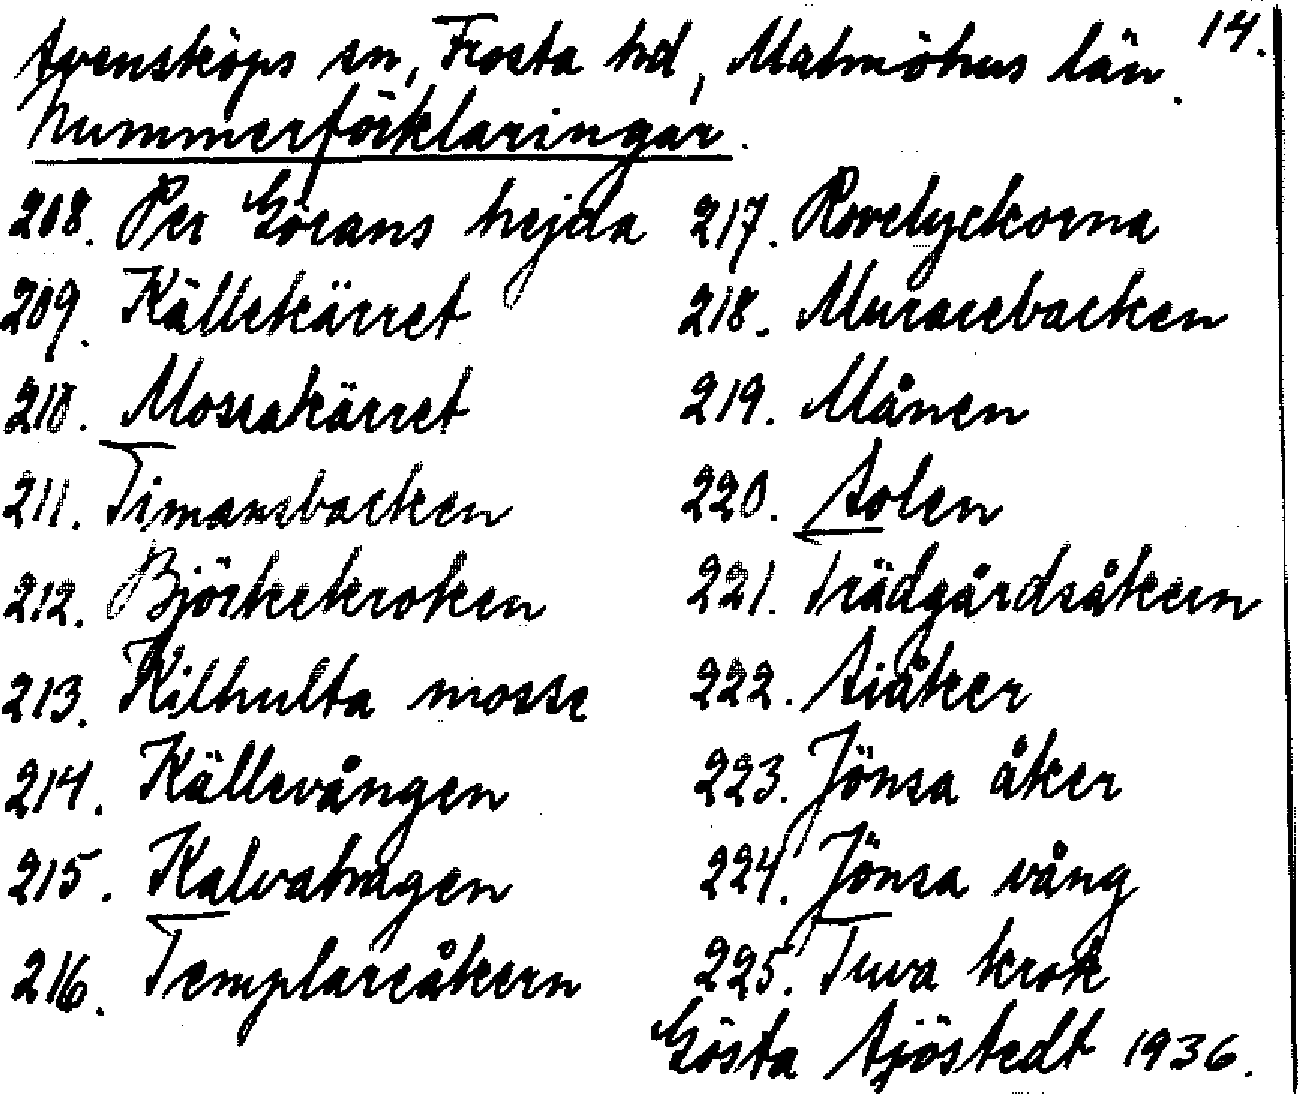 14.
Svensköps sn, Frosta hd, Malmöhus län.
Nummerförklaringar.
208. Per Görans hejda
209. Källekärret
210. Mossakärret
211. Timansbacken
212. Björkekroken
213. Kilhulta mosse
214. Källevången
215. Kalvahagen
216. Templareåkern
217. Rovelyckorna
218. Murarebacken
219. Månen
220. Solen
221. Trädgårdsåkern
222. Siåker
223. Jönsa åker
224. Jönsa vång
225. Tuva krok
Gösta Sjöstedt 1936.